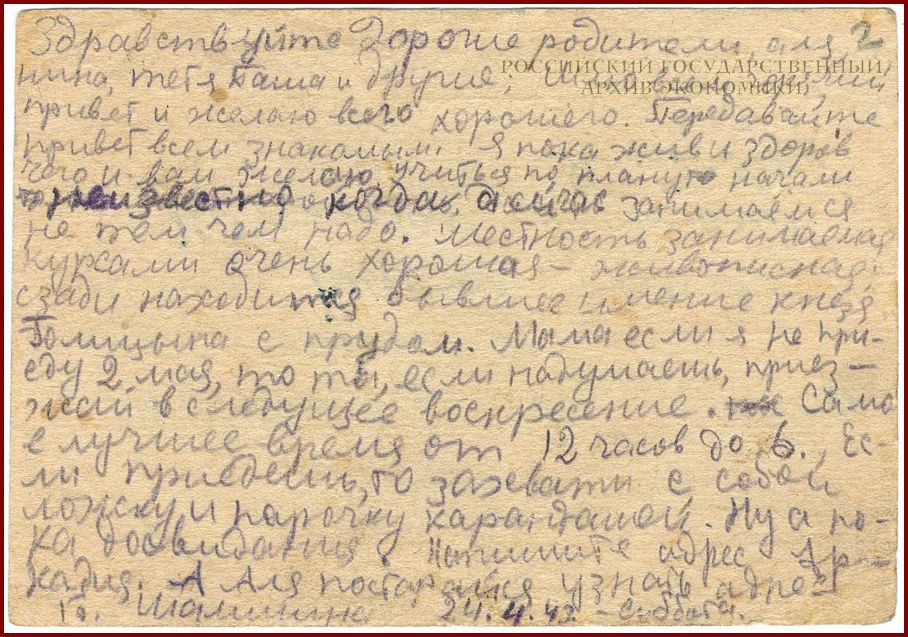 Здравствуйте Дорогие родители, аля 2
нина, тетя Паша и другие, Шлю вам
РОССИЙСКИЙ ГОСУДАРСТВЕННЫЙ
АРХИВ ЭКОНОМИКИ
привет и желаю всего хорошего. Передавайте
привет всем знакомым. Я пока жив и здоров
чего и вам желаю, учиться по плану начали
неизвестно когда, а сейчас занимаемся
не тем чем надо. Местность занимаемая
курсами очень хорошая – живописная.
сзади находится бывшее имение князя
Голицына с прудом. Мама если я не при-
еду 2 мая, то ты, если надумаешь, приез-
жай в следущее воскресение. Само
е лучшее время от 12 часов до 6. Ес-
ли приедешь, то захвати с собой
ложку и парочку карандашей. Ну а по-
ка досвидания. Напишите адрес Ар-
кадия. А Аля постарайся узнать адрес
Шамшина 24.4.43. – Суббота.